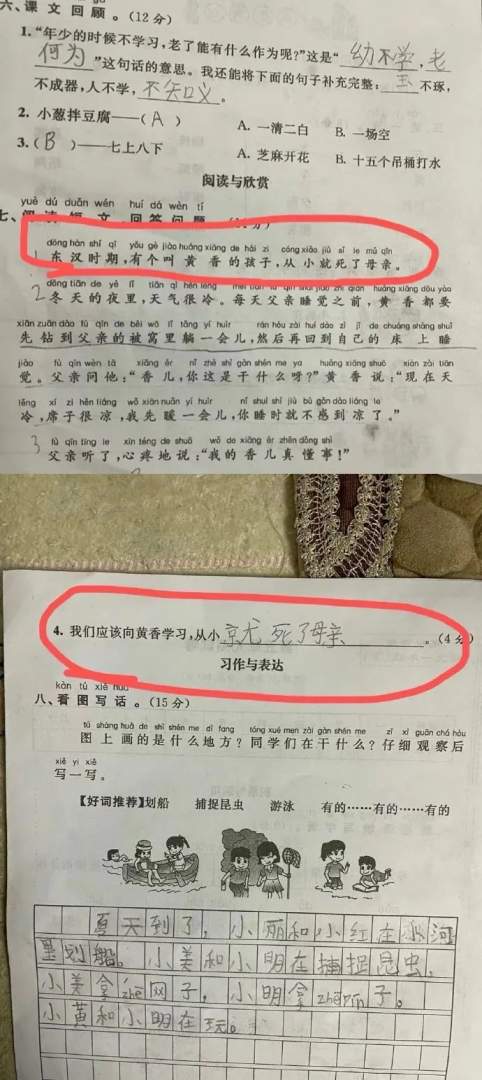 六、课文回顾。(12分)
1.“年少的时候不学习,老了能有什么作为呢?”这是“幼不学,老
何为”这句话的意思。我还能将下面的句子补充完整:玉不琢,
不成器,人不学,不知义。
2. 小葱拌豆腐——( A ) A. 一清二白 B. 一场空
3.( B )——七上八下 A. 芝麻开花 B. 十五个吊桶打水
阅读与欣赏
yuè dú duǎn wén huí dá wèn tí
七、阅读短文,回答问题。
dōng hàn shí qī yǒu gè jiào huáng xiāng de hái zi cóng xiǎo jiù sǐ le mǔ qīn
1 东汉时期,有个叫黄香的孩子,从小就死了母亲。
dōng tiān de yè lǐ tiān qì hěn lěng měi tiān fù qīn shuì jiào zhī qián huáng xiāng dōu yào
2 冬天的夜里,天气很冷。每天父亲睡觉之前,黄香都要
xiān zuān dào fù qīn de bèi wō lǐ tǎng yí huìr rán hòu zài huí dào zì jǐ de chuáng shàng shuì
先钻到父亲的被窝里躺一会儿,然后再回到自己的床上睡
jiào fù qīn wèn tā xiāng ér nǐ zhè shì gàn shén me ya huáng xiāng shuō xiàn zài tiān
觉。父亲问他:“香儿,你这是干什么呀?”黄香说:“现在天
lěng xí zi hěn liáng wǒ xiān nuǎn yí huìr nǐ shuì shí jiù bù gǎn dào liáng le
冷,席子很凉,我先暖一会儿,你睡时就不感到凉了。”
fù qīn tīng le xīn téng de shuō wǒ de xiāng ér zhēn dǒng shì
3 父亲听了,心疼地说:“我的香儿真懂事!”
4. 我们应该向黄香学习,从小京尤死了母亲。(4分)
习作与表达
kàn tú xiě huà
八、看图写话。(15分)
tú shàng huà de shì shén me dì fang tóng xué men zài gàn shén me zǐ xì guān chá hòu
图上画的是什么地方?同学们在干什么?仔细观察后
xiě yi xiě
写一写。
【好词推荐】划船 捕捉昆虫 游泳 有的……有的……有的
夏天到了,小丽和小红在河
里划船。小美和小明在捕捉昆虫,
小美拿zhe网子,小明拿zhe瓶子。
小黄和小明在玩。